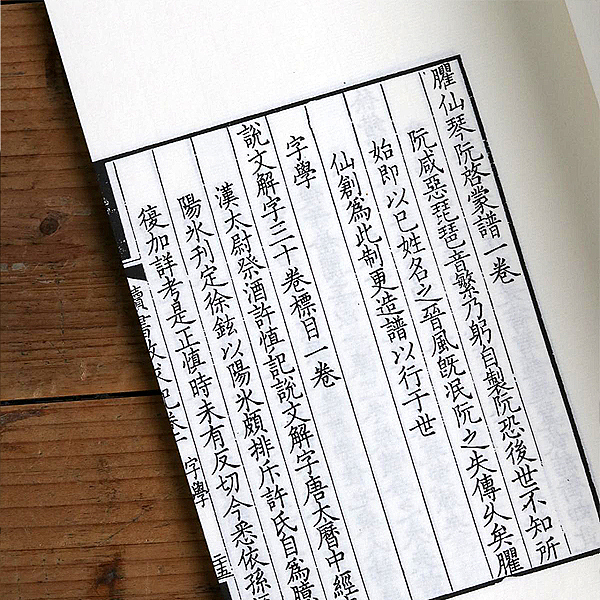 臞仙琴阮啓蒙譜一卷
阮咸惡琵琶音繁乃躬自製阮恐後世不知所
始即以已姓名之晉風旣泯阮之失傳久矣臞
仙創爲此制更造譜以行于世
字學
說文解字三十卷標目一卷
漢太尉祭酒許慎記說文解字唐大曆中經
陽氷刋定徐鉉以陽氷頗排斥許氏自爲臆
復加詳考是正慎時未有反切今悉依孫
讀書 字學